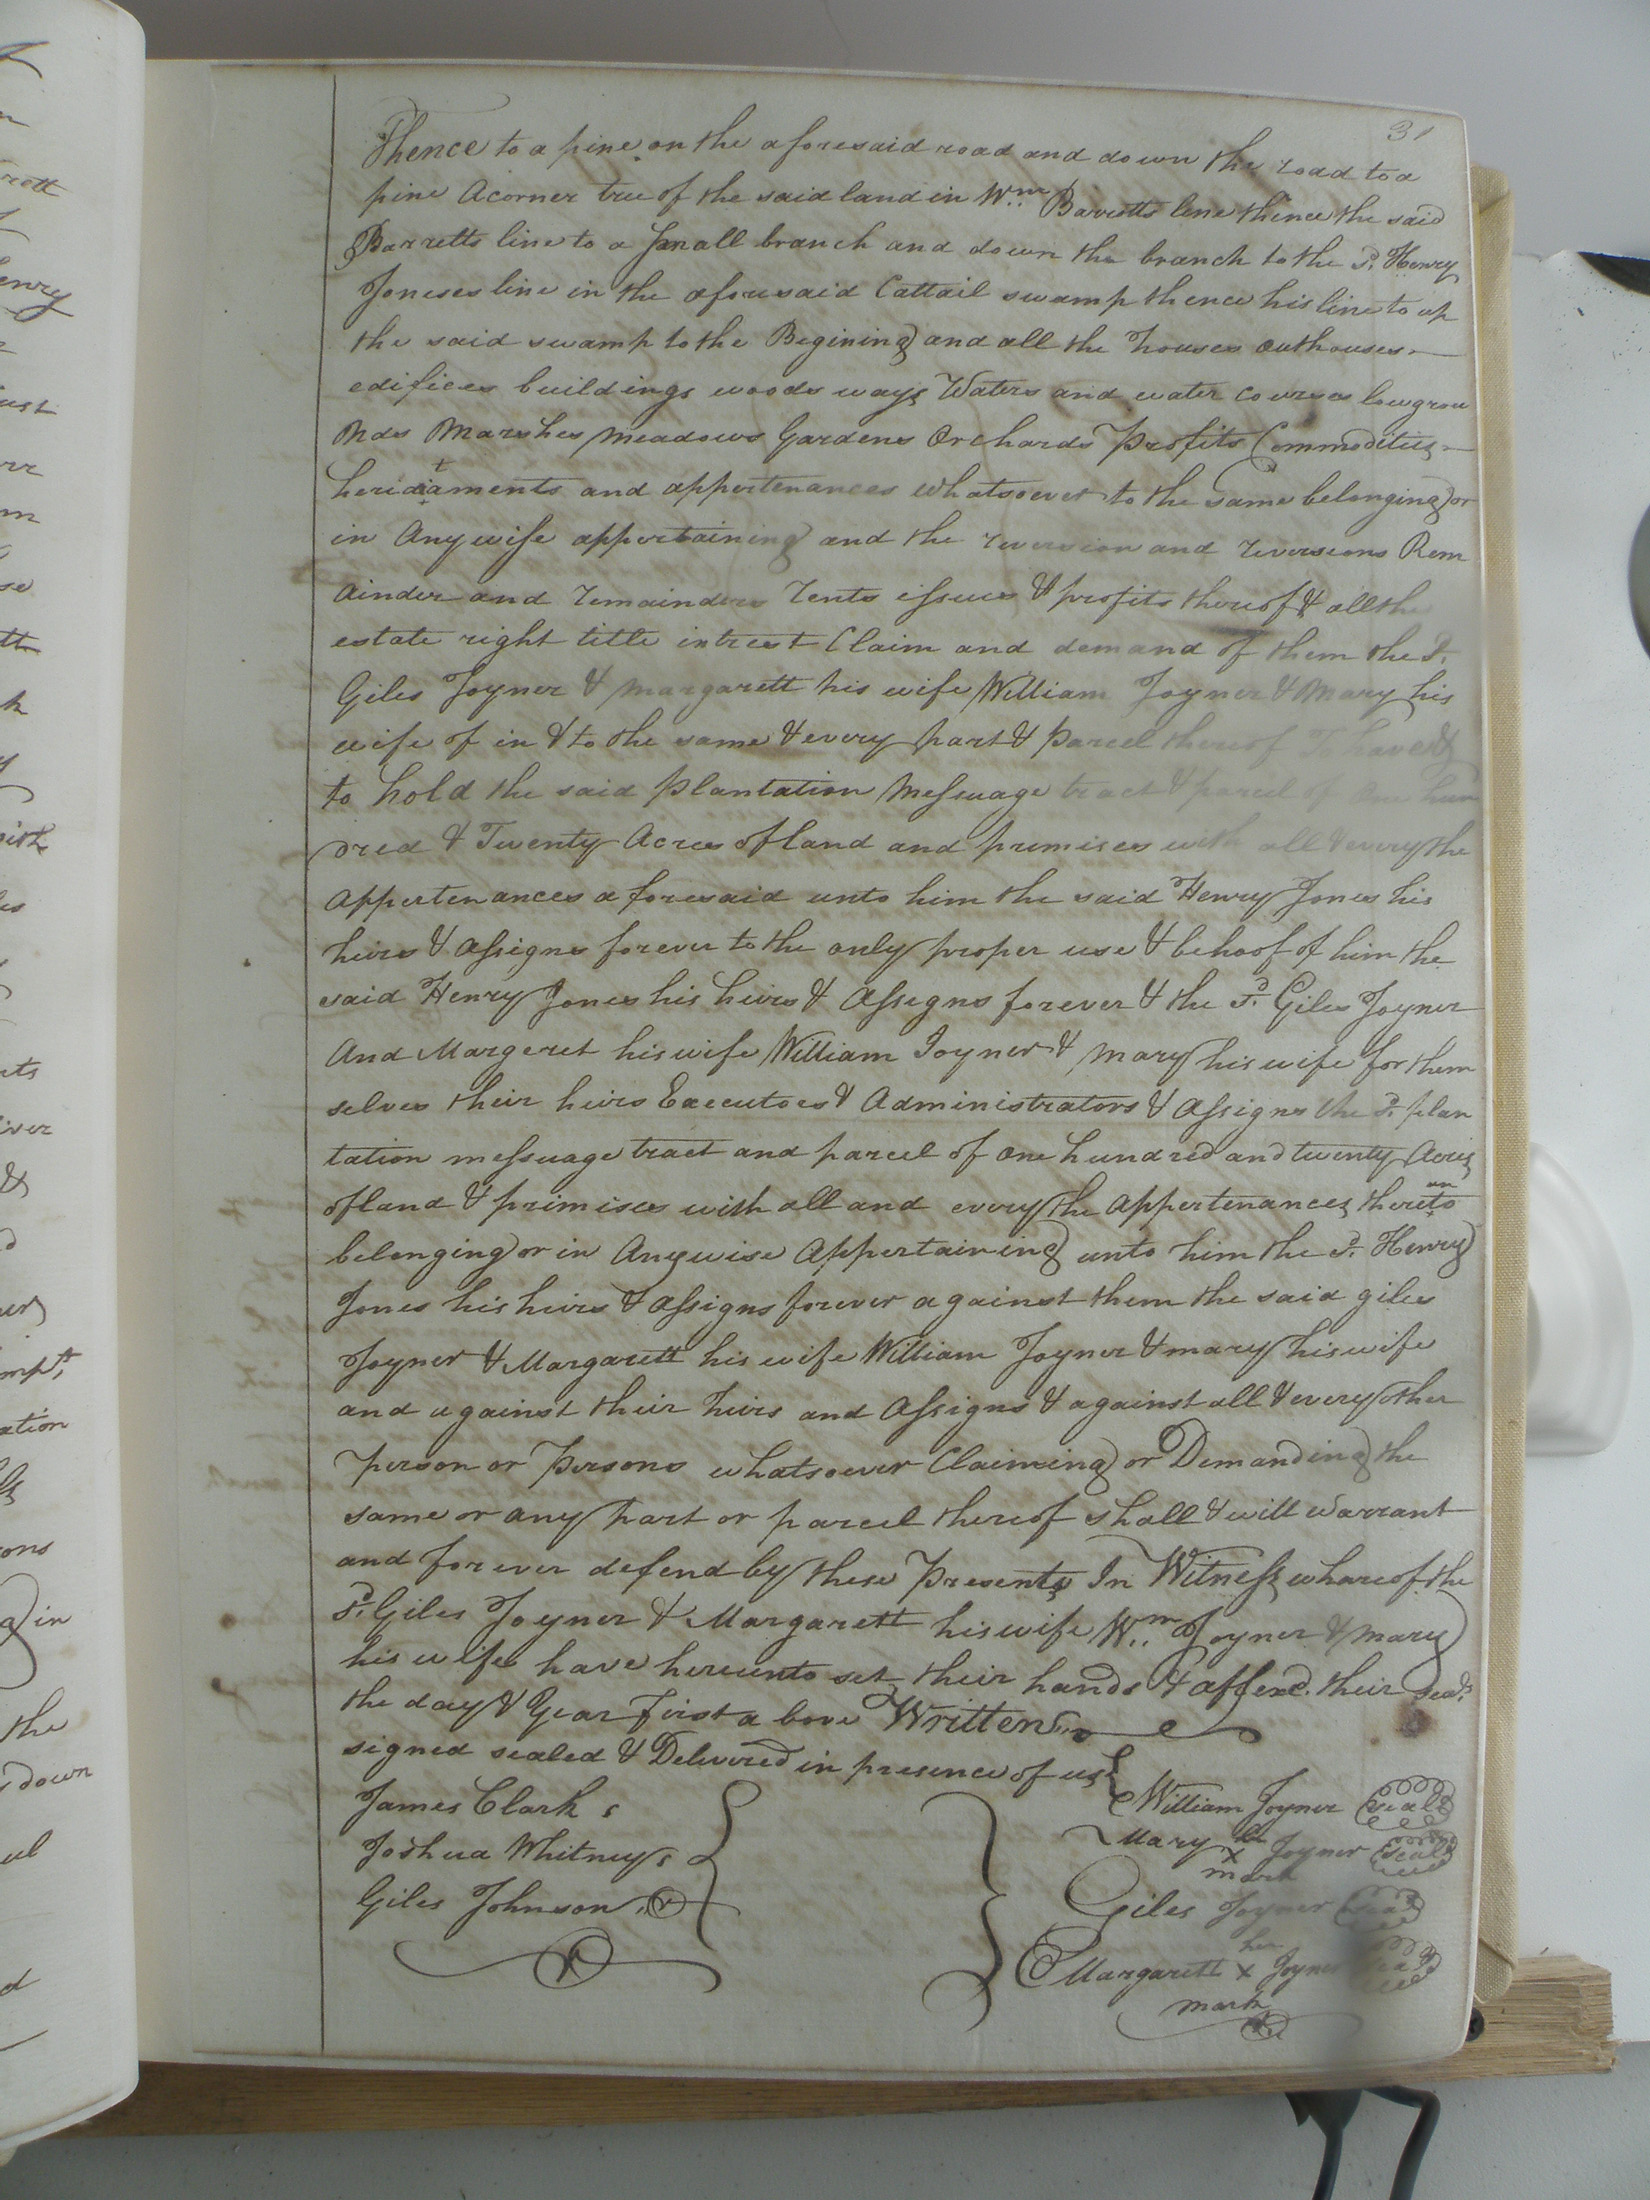 31
Thence to a pine on the aforesaid road and down the road to a
pine Acorner tree of the said land in Wm. Barretts line thence the said
Barretts line to a small branch and down the branch to the sd. Henry
Joneses line in the aforesaid Cattail swamp thence his line to up
the said swamp to the Begining and all the houses outhouses
edifices buildings woods ways Waters and water courses lowgrou
nds Marshes meadows Gardens Orchards Profits Commodities
heriditaments and appertenances whatsoever to the same belonging or
in Anywise appertaining and the reversion and reversions Rem
ainder and remainders rents issues & profits thereof & all the
estate right title intrest Claim and demand of them the sd.
Giles Joyner & Margarett his wife William Joyner & Mary his
wife of in & to the same & every part & Parcel thereof To have &
to hold the said plantation Messuage tract & parcel of One hun
dred & Twenty Acres of land and premises with all & every the
Appertenances aforesaid unto him the said Henry Jones his
heirs & Assigns forever to the only proper use & behoof of him the
said Henry Jones his heirs & Assigns forever & the sd. Giles Joyner
And Margeret his wife William Joyner & Mary his wife for them
selves their heirs Executors & Administrators & Assigns the sd. plan
tation messuage tract and parcel of one hundred and twenty Acres
of land & primises with all and every the Appertenances thereunto
belonging or in Anywise Appertaining unto him the sd. Henry
Jones his heirs & Assigns forever against them the said giles
Joyner & Margarett his wife William Joyner & mary his wife
and against their heirs and Assigns & against all & every other
person or Persons whatsoever Claiming or Demanding the
same or any part or parcel thereof shall & will warrant
and forever defend by these Presents In Witness whareof the
sd. Giles Joyner & Margarett his wife Wm. Joyner & mary
his wife have hereunto set their hands & affexd. their seals
the day & Year First above Written
signed sealed & Delivered in presence of us
James Clark
Joshua Whitney
Giles Johnson
William Joyner seal
Mary her x mark Joyner seal
Giles Joyner seal
Margarett her x mark Joyner seal